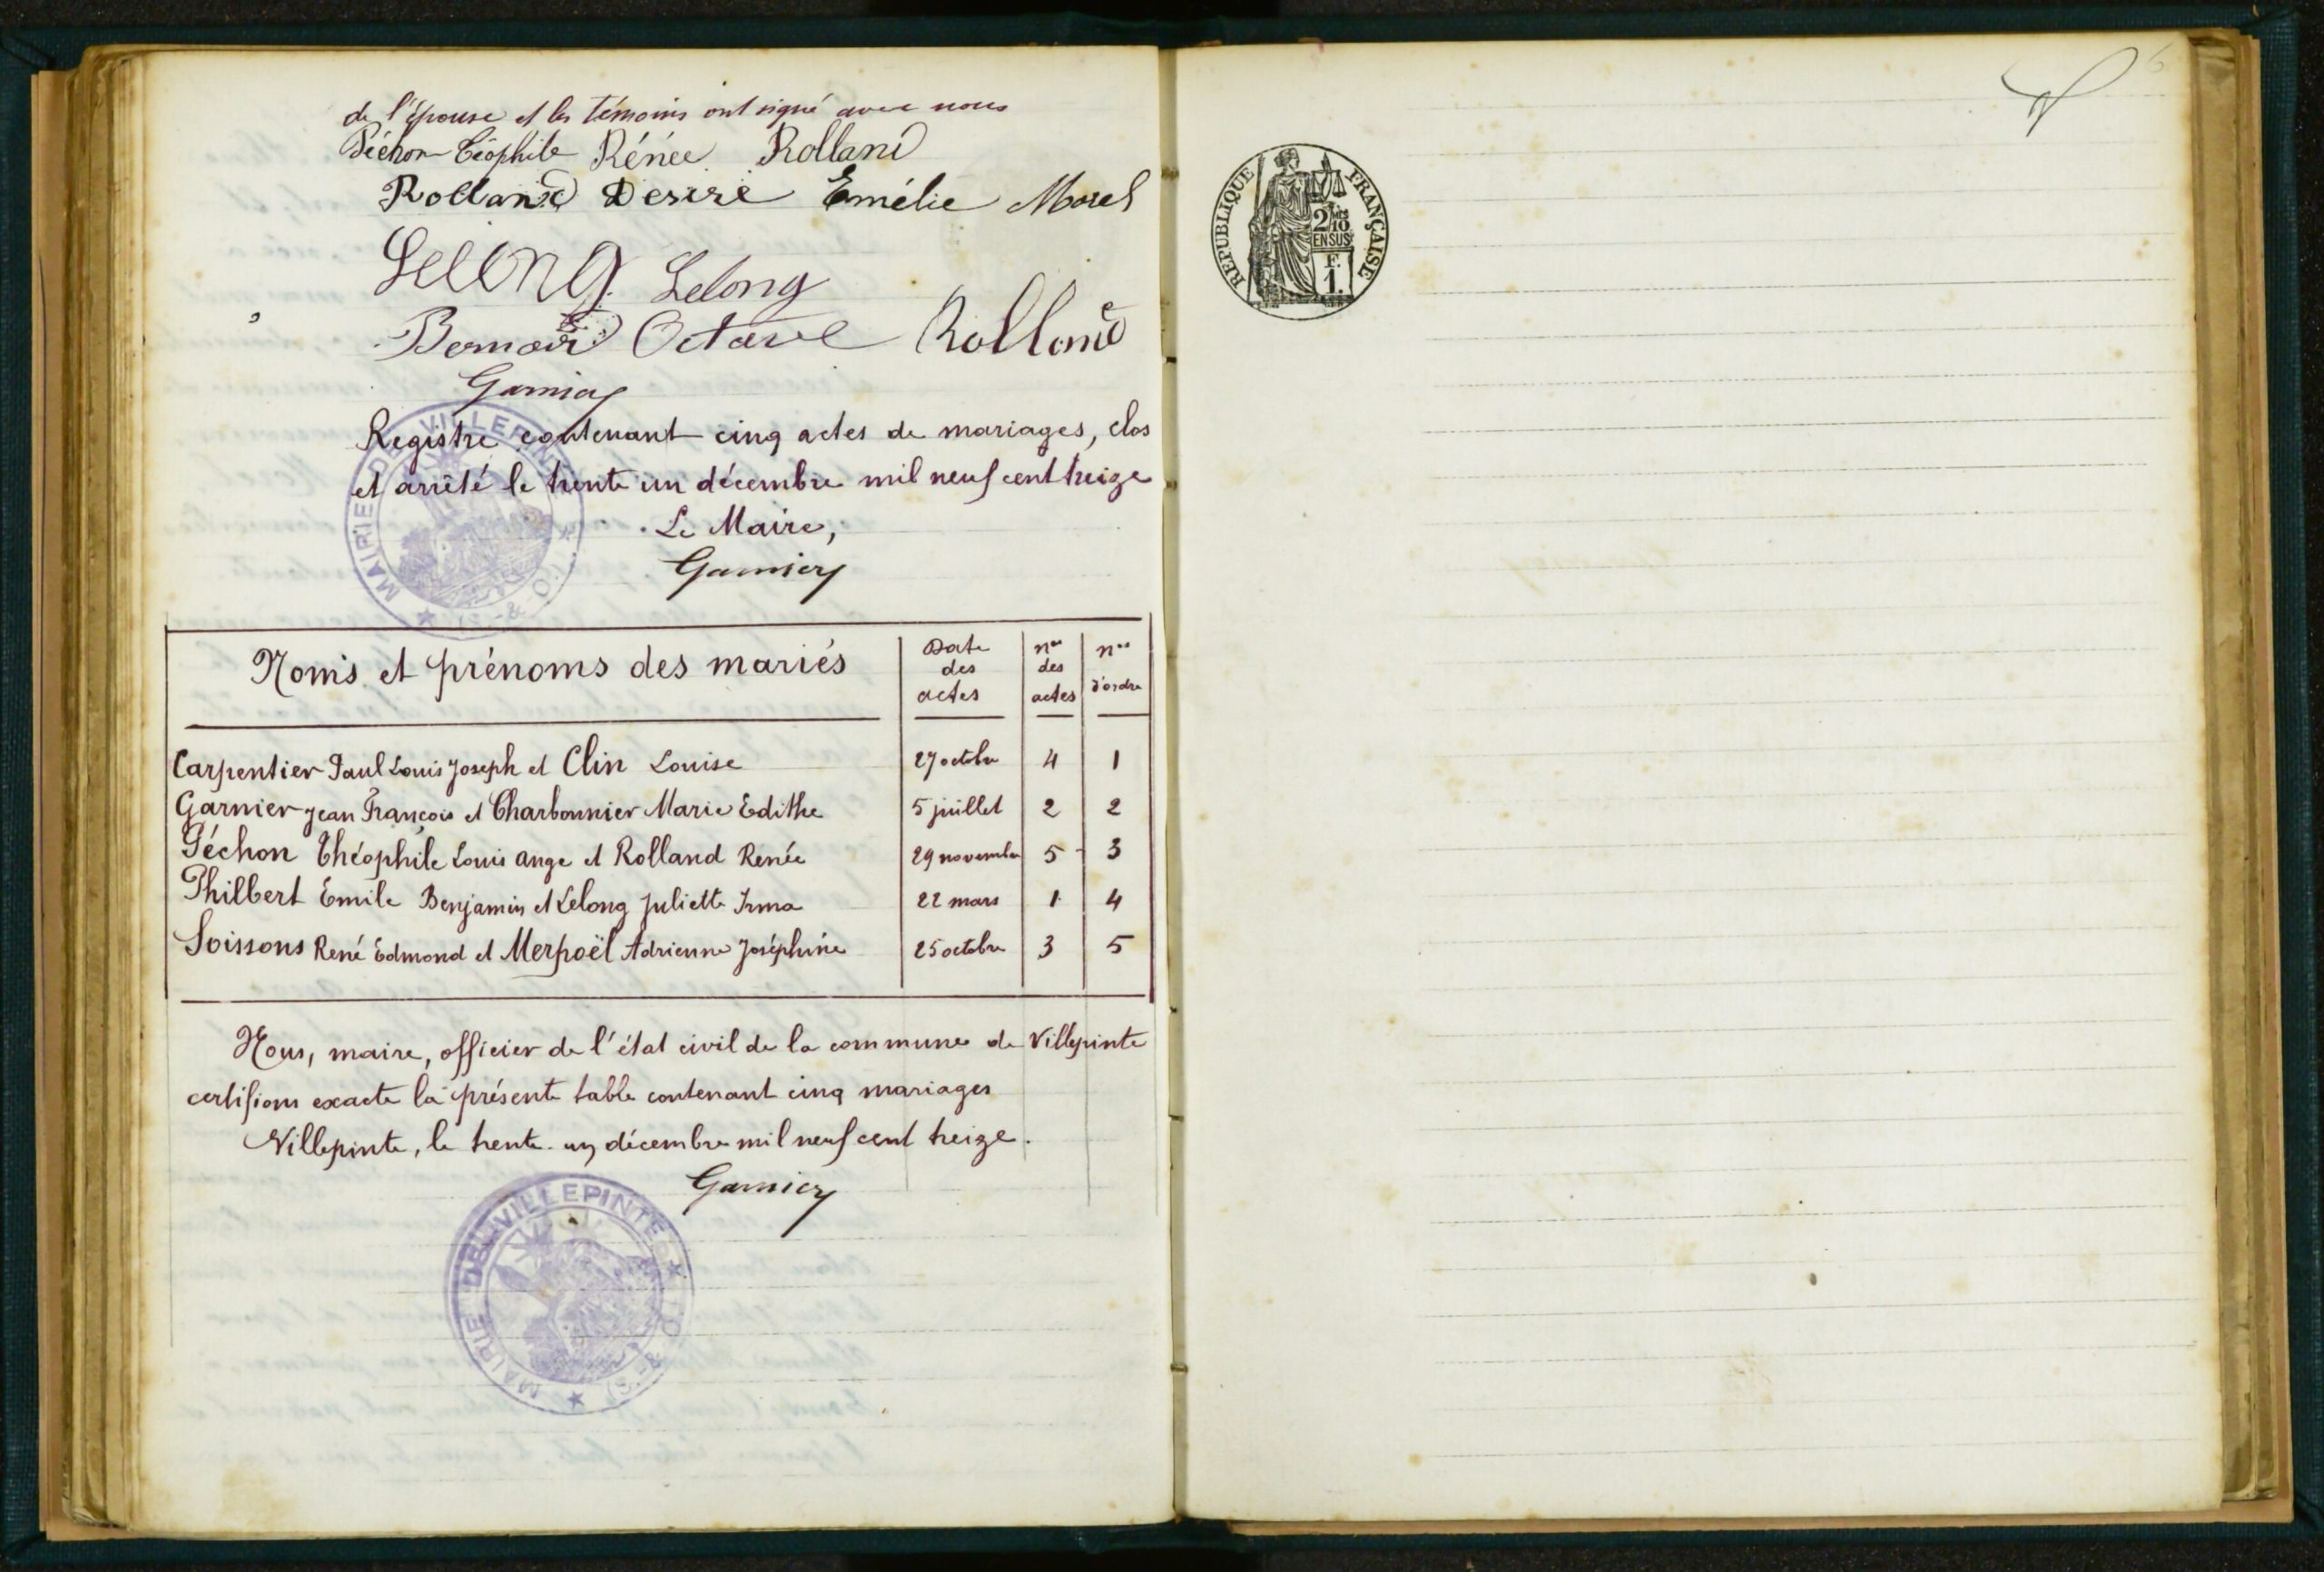 de l'épouse et les témoins ont signé avec nous
Péchon Téophile Rénée Rolland
Rolland Desiré Emélie Morel
Lelong Lelong
Octave Rolland
Garnier
Registre contenant cinq actes de mariages, clos
et arrêté le trente un décembre mil neuf cent treize
Le Maire,
Garnier
MAIRIE DE VILLEPINTE (S.-&-O.)
Noms et prénoms des mariés Date des actes nos des actes nos d'ordre
Carpentier Paul Louis Joseph et Clin Louise 27 octobre 4 1
Garnier Jean François et Charbonnier Marie Edithe 5 juillet 2 2
Péchon Théophile Louis Ange et Rolland Renée 29 novembre 5 3
Philbert Emile Benjamin et Lelong Juliette Irma 22 mars 1 4
Soissons René Edmond et Merpoël Adrienne Joséphine 25 octobre 3 5
Nous, maire, officier de l'état civil de la commune de Villepinte
certifions exacte la présente table contenant cinq mariages
Villepinte, le trente-un décembre mil neuf cent treize.
Garnier
MAIRIE DE VILLEPINTE (S.-&-O.)
6
RÉPUBLIQUE FRANÇAISE
2/10
EN SUS
F.
1.